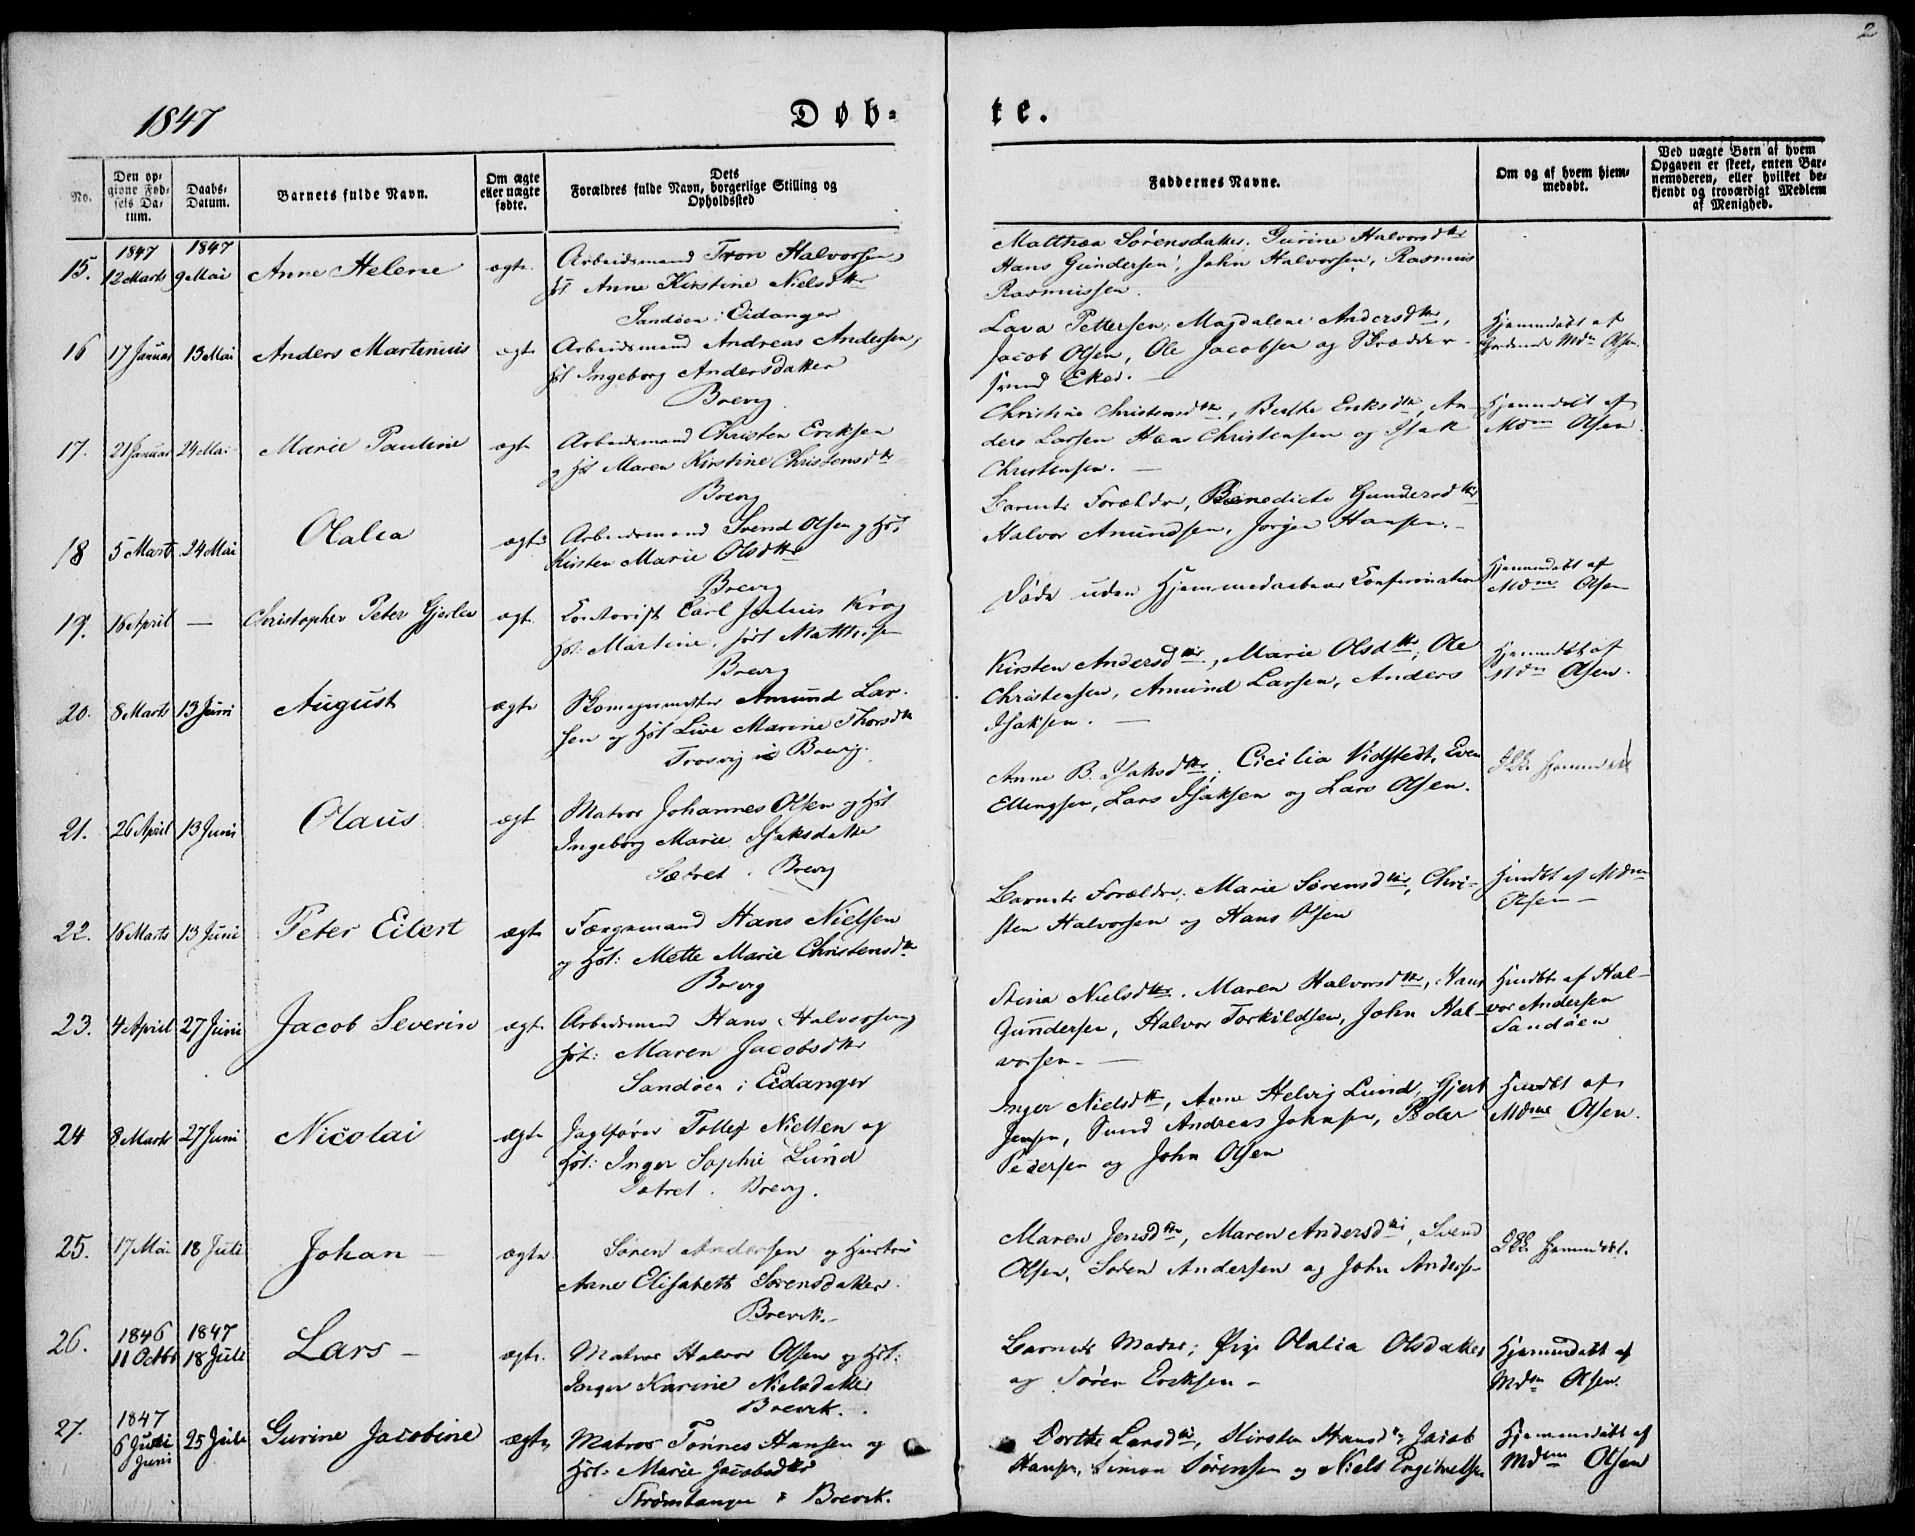 2
1847
Døb-
te.
No.
Den op-
givne Fød-
sels Da-
tum.
Daabs-
Datum.
Barnets fulde Navn.
Om ægte
eller uægte
fødte.
Dets
Forældres fulde Navn, borgerlige Stilling og
Opholdssted
Faddernes Navne.
Om og af hvem hjem-
medøbt.
Ved uægte Børn af hvem
Opgaven er skeet, enten Bar-
nemoderen, eller hvilket be-
kjendt og troværdigt Medlem
af Menighed.
15. 1847 12 Marts 1847 9 Mai Anne Helene ægte
Arbeidsmand Tron Halvorsen,
Hst Anne Kirstine Nielsdttr
Sandøen i Eidanger
Matthæa Sørensdatter. Gurine Halvorsdttr
Hans Gundersen, John Halvorsen, Rasmus
Rasmussen.
16 17 Januar 13 Mai Anders Martinius ægte
Arbeidsmand Andreas Andersen,
Hst Ingeborg Andersdatter
Brevig
Lava Pettersen, Magdalene Andersdttr,
Jacob Olsen, Ole Jacobsen og Skrædder-
svend Eker.
Hjemmedøbt af
Mdm Olsen.
17. 21 Januar 24 Mai Marie Pauline ægt
Arbeidsmand Christen Ericksen
og Hst Maren Kirstine Christensdttr
Brevig
Christine Christensdttr, Berthe Ericksdttr, An-
ders Larsen Hans Christensen og Isak
Christensen.
Hjemmedøbt af
Mdm Olsen.
18 5 Marts 24 Mai Olalia ægte
Arbeidsmand Svend Olsen og Hst
Kirsten Marie Olsdttr
Brevig
Barnets Forældre, Benedicte Gundersdttr
Halvor Amundsen, Jørgen Hansen.
19. 16 April — Christopher Peter Gjerløv ægt.
Contorist Carl Julius Krog
Hst. Martine, født Matthisen
Brevig
Døde uden Hjemmedaabens Confirmation
Hjemmedøbt af
Mdm Olsen
20. 8 Marts 13 Juni August ægte
Skomagermester Amund Lar-
sen og Hst Live Marine Thorsdttr
Trosvig i Brevig.
Kirsten Andersdttr, Marie Olsdttr, Ole
Christensen, Amund Larsen, Anders
Isaksen.
Hjemmedøbt af
Mdm Olsen.
21. 26 April 13 Juni Olaus ægt
Matros Johannes Olsen og Hst
Ingeborg Marie Isaksdatter
Sætret. Brevig
Anne B. Isaksdttr, Cicilia Vidstedt, Even
Ellingsen, Lars Isaksen og Lars Olsen.
Ikke hjemmedøbt
22. 16 Marts 13 Juni Peter Eilert ægte
Færgemand Hans Nielsen
og Hst: Mette Marie Christensdttr
Brevig
Barnets Forældre, Marie Sørensdttr, Chri-
sten Halvorsen og Hans Olsen
Hjmdbt af Mdm
Olsen
23. 4 April 27 Juni Jacob Severin ægt.
Arbeidsmand Hans Halvorsen og
Hst: Maren Jacobsdttr
Sandøen i Eidanger
Stina Nielsdttr. Maren Halvorsdttr, Hans
Gundersen, Halvor Torkildsen, John Hal-
vorsen.
Hjmdbt af Hal-
vor Andersen
Sandøen
24 8 Marts 27 Juni Nicolai ægte
Jagtfører Tollef Nielsen og
Hst: Inger Sophie Lund
Sætret. Brevig.
Inger Nielsdttr, Anne Helvig Lund, Gjert
Jensen, Svend Andreas Johnsen, Peder
Pedersen og John Olsen
Hjmdbt af
Mdme Olsen.
25. 17 Mai 18 Juli Johan — ægte
Søren Andersen og Hustru
Anne Elisabeth Sørensdatter.
Brevik.
Maren Jensdttr, Maren Andersdttr, Svend
Olsen, Søren Andersen og John Andersen
Ikke hjemmedøbt.
26. 1846 11 Octbr 1847 18 Juli Lars — ægte.
Matros Halvor Olsen og Hst:
Inger Karine Nielsdatter
Brevik.
Barnets Moder, Pige Olalia Olsdatter
og Søren Ericksen
Hjemmedøbt af
Mdm Olsen.
27. 1847 6 Juli Juni 25 Juli Gurine Jacobine ægte
Matros Tønnes Hansen og
Hst. Marie Jacobsdttr
Strømtangen i Brevik.
Dorthe Larsdttr, Kirsten Hansdttr, Jacob
Hansen, Simon Sørensen og Niels Engebretsen
Hjemmedøbt af
Mdm Olsen